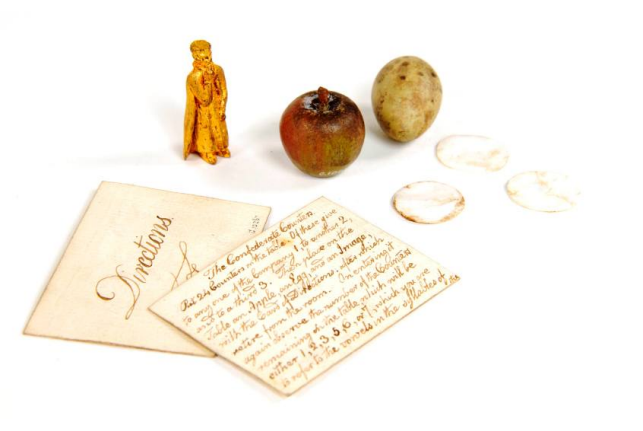 Directions
The Confederate Counters
Put 24 Counters on the table. Of these give
to any one of the company 1, to another 2,
and to a third 3. Then place on the
table an Apple, an Egg, and an Image,
with the card of directions, after which
retire from the room. On entering it
again observe the number of the Counters
remaining on the table which will be
either 1, 2, 3, 5, 6, or 7, which you are
to refer to the vowels in the syllables of